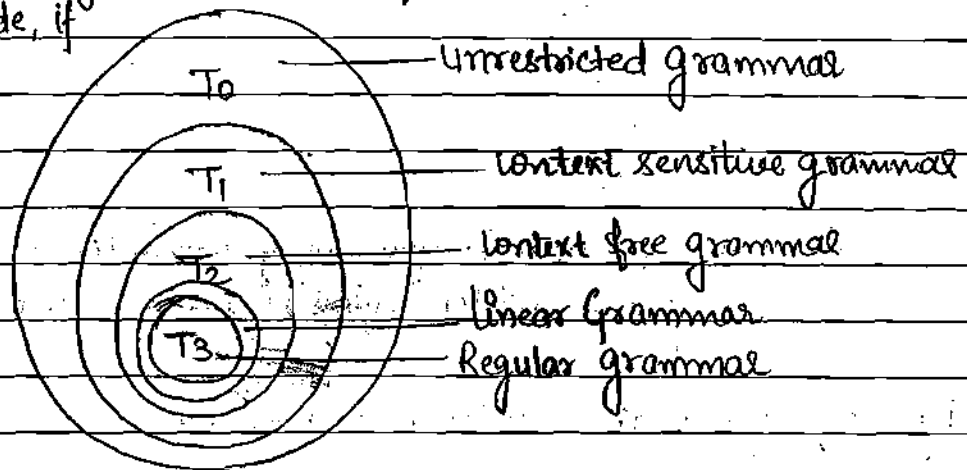 de, if
T0 Unrestricted grammar
T1 context sensitive grammar
T2 context free grammar
linear Grammar
T3 Regular grammar